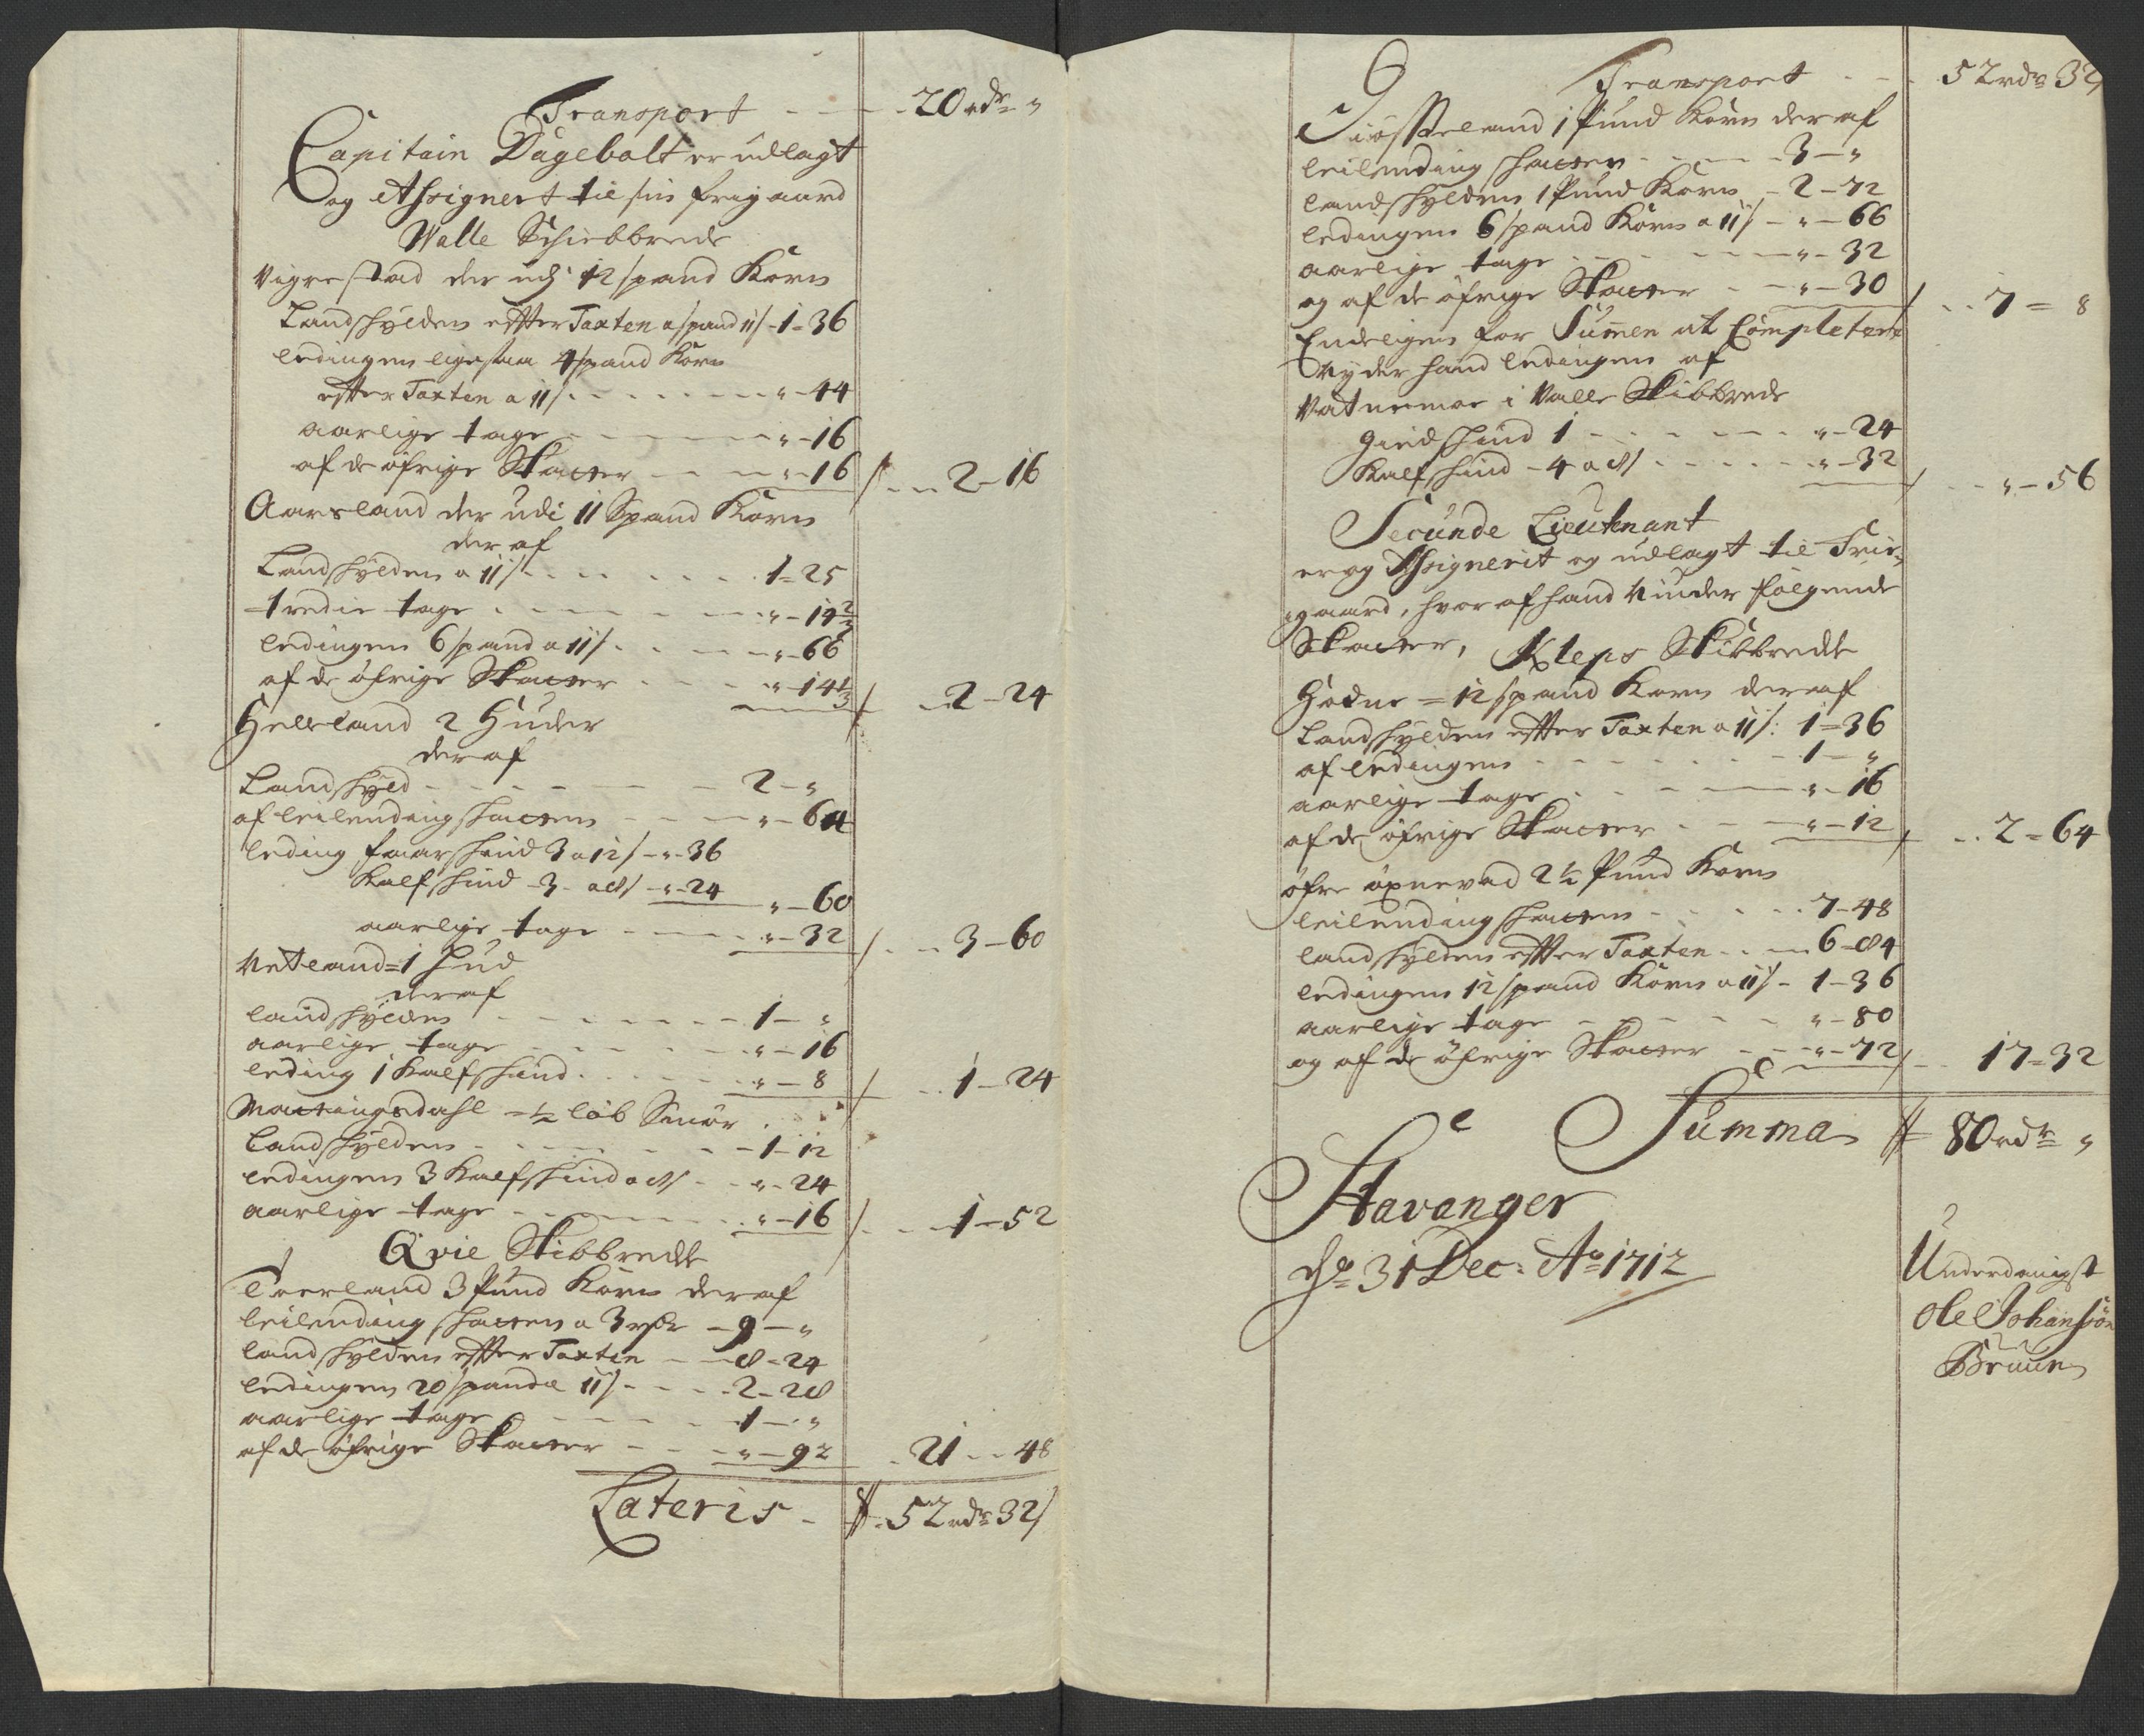 Transport - - - 20 rdr "
Capitain Dagebolt er udlagt
og Assignert til sin frigaard
Walle Schibbrede
Vigrestad der udj 12 spand Korn
Landskylden efter Taxten a spand 11 s - 1 = 36
ledingen ligesaa 4 spand Korn
efter Taxten a 11 s - - - " - 44
aarlige tage - - - " - 16
af de øfrige Skatter - - " - 16 / - - 2 - 16
Aarsland der udi 11 Spand Korn
der af
Landskylden a 11 s - - - 1 = 25
tredie tage - - - " - 14 2/3
ledingen 6 spand a 11 s - - - " - 66
af de øfrige Skatter - - - " - 14 1/3 / - 2 - 24
Helleland 2 Huder
der af
Landskyld - - - 2 - "
af leilending skatten - - - " - 64
leding faarskind 3 a 12 s - " - 36
Kalfskind - 3 - a 8 s - " - 24 " - 60
aarlige tage - - - " - 32 / - - 3 - 60
Netland = 1 hud
der af
landskylden - - - 1 - "
aarlige tage - - - " - 16
leding 1 Kalfskind - - - " - 8 / - - 1 - 24
Matningsdahl = 1/2 løb Smør
Landskylden - - - 1 - 12
ledingen 3 Kalfskind a 8 s - - " - 24
aarlige tage - - - " - 16 / - - 1 - 52
Qvie Skibbrede
Tverland 3 Pund Korn der af
leilending skatten a 3 rdr - 9 - "
landskylden efter Taxten - - 8 = 24
ledingen 20 spand a 11 s - - - 2 - 28
aarlige tage - - - 1 - "
af de øfrige Skatter - - - " - 92 - 21 - - 48
Lateris - 52 rdr 32 s
Transport - - 52 rdr 32 s
Tiøsseland 1 Pund Korn der af
leilending skatten - - - 3 - "
landskylden 1 Pund Korn - 2 - 72
ledingen 6 spand Korn a 11 s - " - 66
aarlige tage - - - " - 32
og af de øfrige Skatter - - " - 30 / - - 7 = 8
Endeligen for Summen at Completere
Nyder hand ledingen af
Vatnemoe i Walle Skibbrede
Giedskind 1 - - - " - 24
Kalfskind - 4 a 8 s - - - " - 32 / - - " - 56
Secunde Lieutenant
er og Assignerit og udlagt til Frie-
gaard, hvor af hand Niuder følgende
Skatter, Kleps Skibbrede
Giødne = 12 spand Korn der af
Landskylden efter Taxten a 11 s: 1 = 36
af ledingen - - - 1 - "
aarlige tage - - - " - 16
af de øfrige Skatter - - " - 12 / - - 2 = 64
øfre øxnevad 2 1/2 Pund Korn
leilending skatten - - - 7 - 48
landskylden efter Taxten - - 6 - 84
ledingen 12 spand Korn a 11 s - 1 - 36
aarlige tage - - - " - 80
og af de øfrige Skatter - - " - 72 / - 17 = 32
Summa 80 rdr "
Stavanger
dn 31 Dec: Ao 1712
Underdanigst
Ole Johanssøn
Bruun